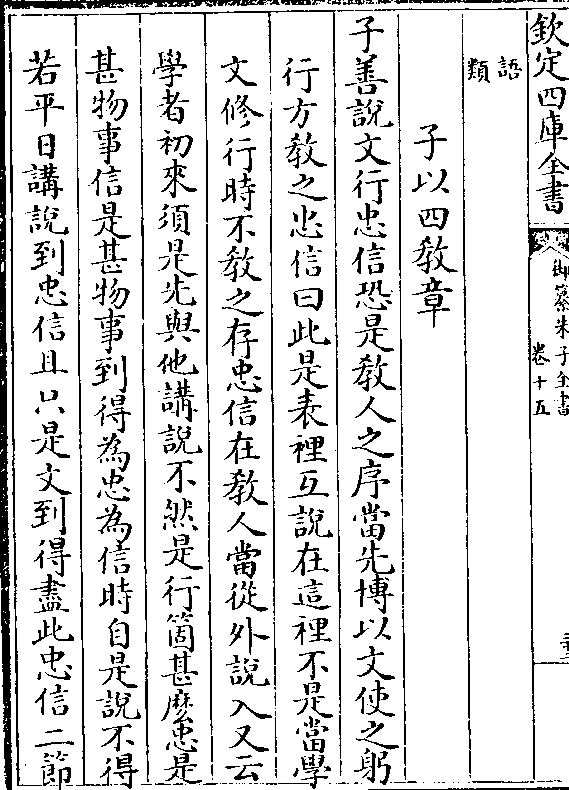 欽定四庫全書
御纂朱子全書
卷十五
語類
子以四教章
子善說文行忠信恐是教人之序當先博以文使之躬
行方教之忠信曰此是表裡互說在這裡不是當學
文修行時不教之存忠信在教人當從外說入又云
學者初來須是先與他講說不然是行箇甚麼忠是
甚物事信是甚物事到得為忠為信時自是說不得
若平日講說到忠信且只是文到得盡此忠信二節